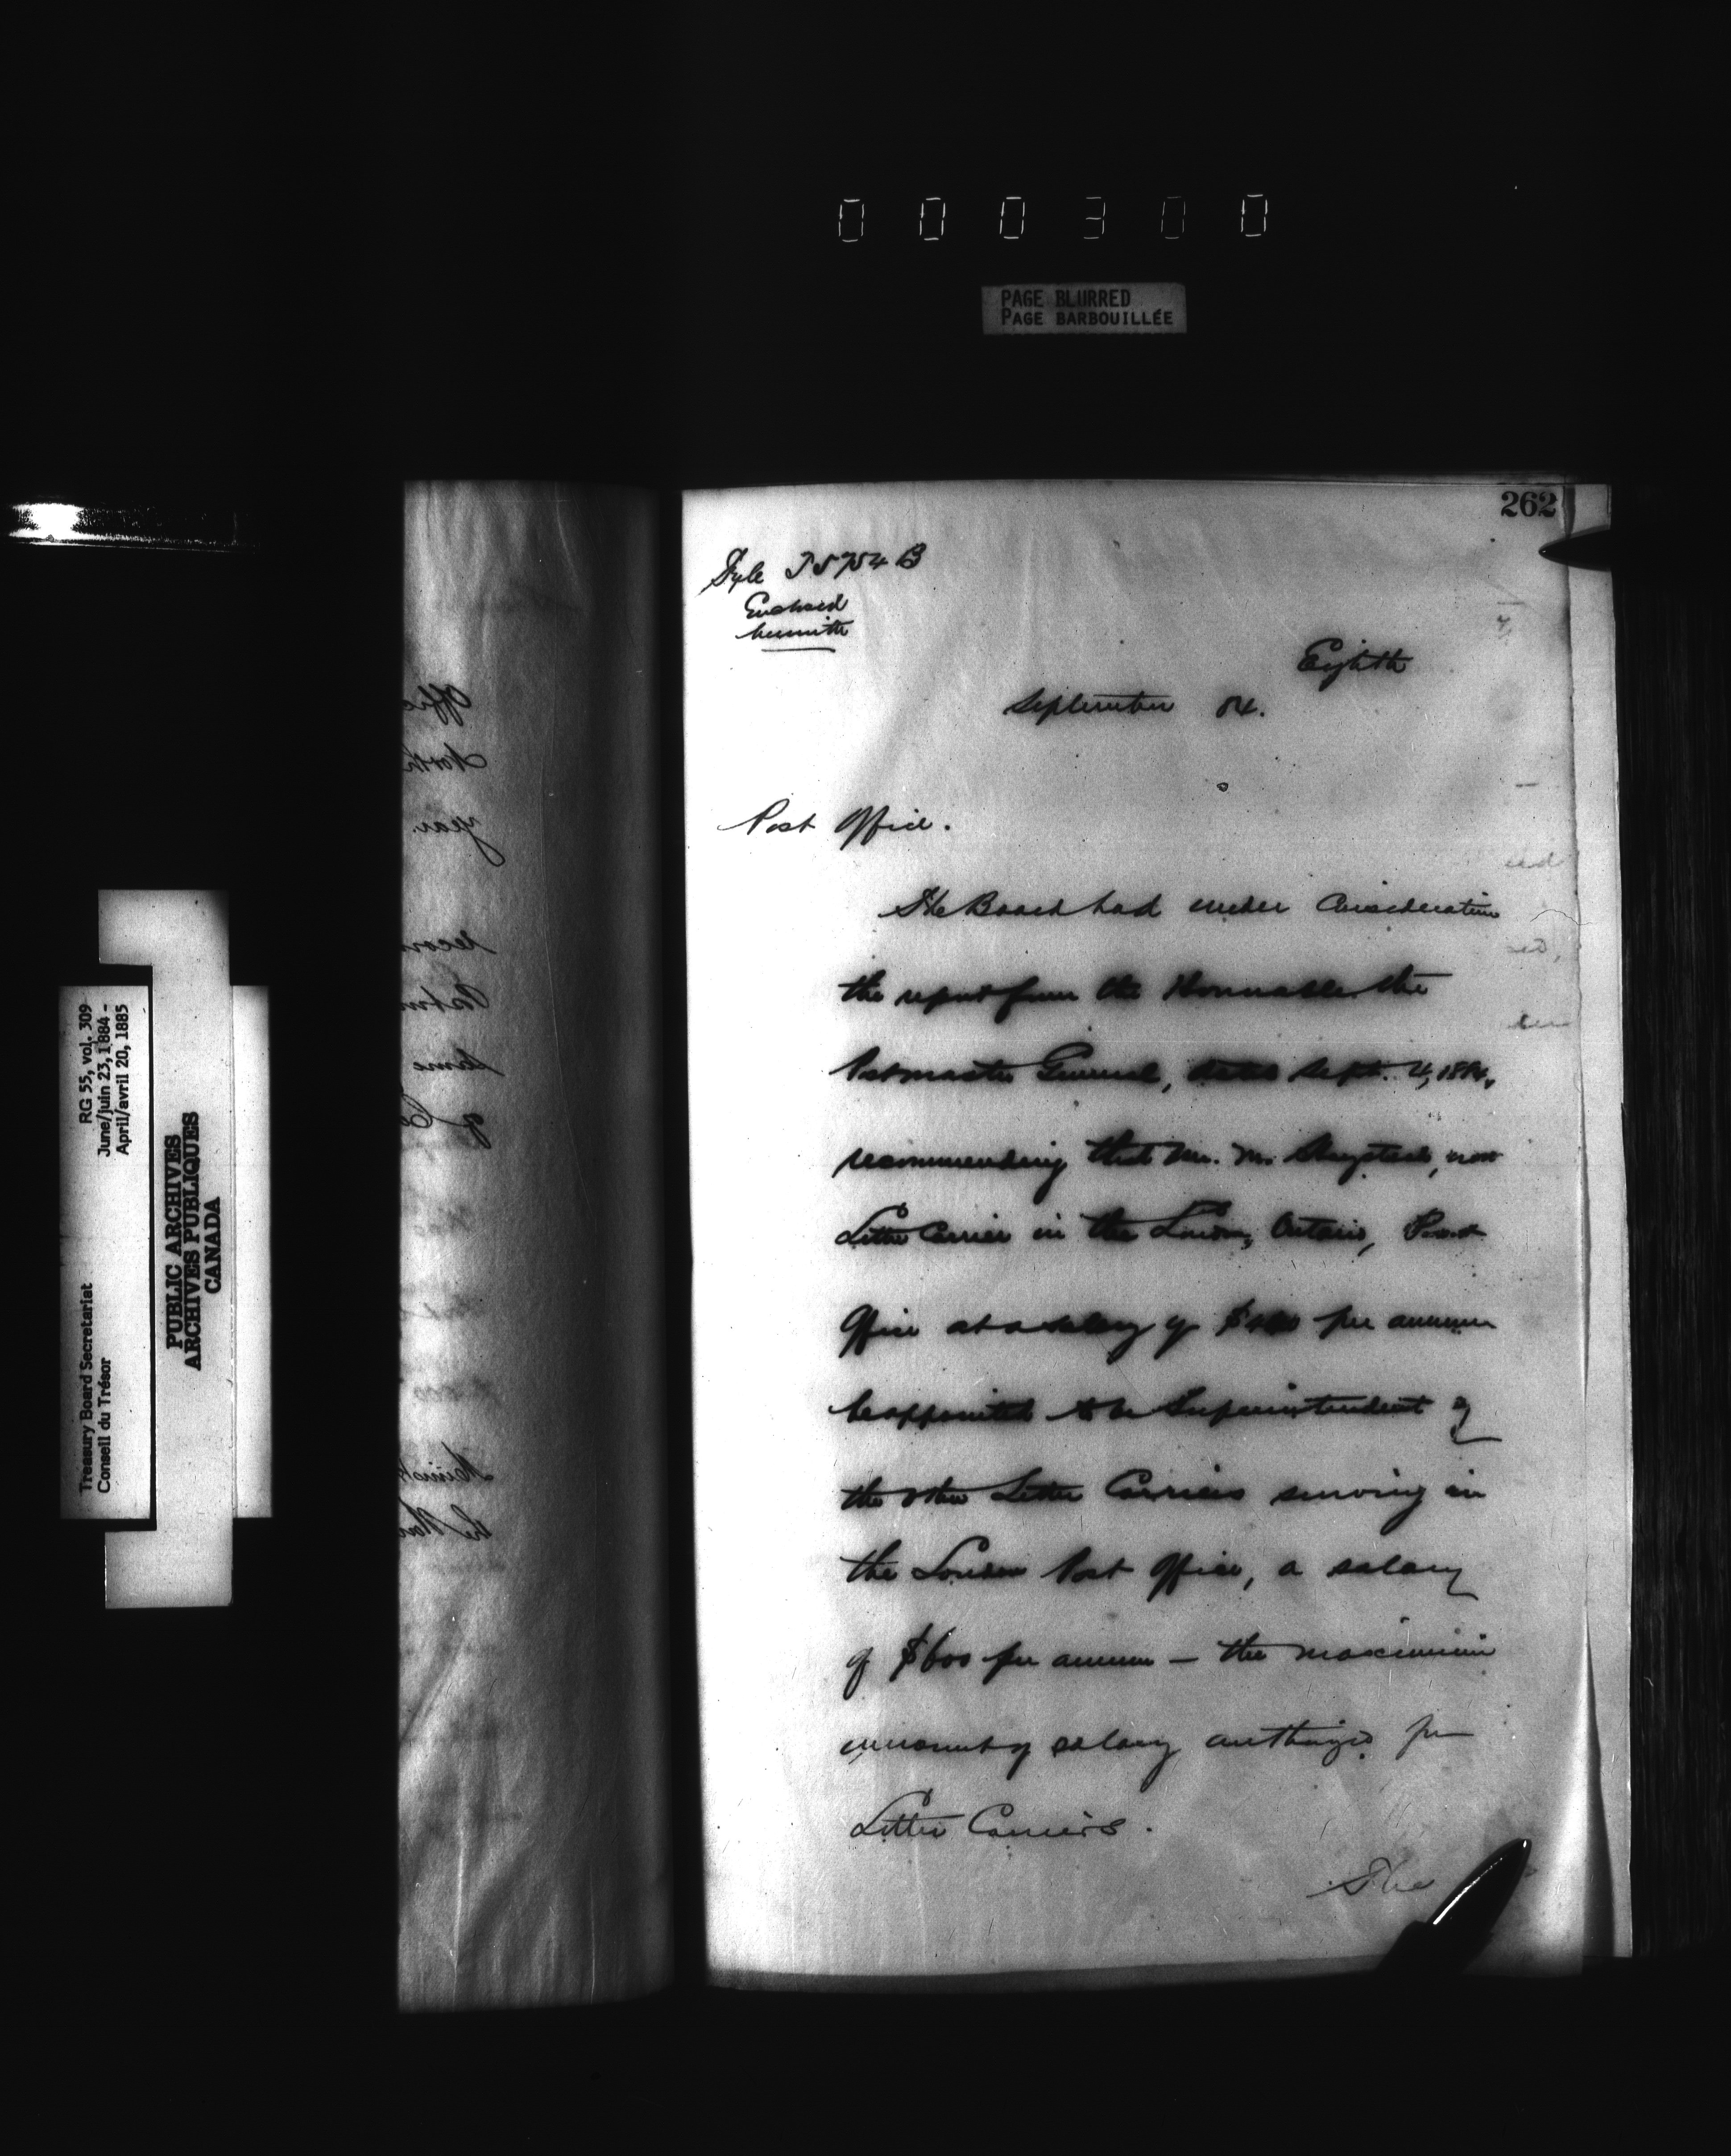 000300
PAGE BLURRED
PAGE BARBOUILLÉE
262
Fyle T5754 B
Enclosed
herewith
Eighth
September 84.
Post Office.
The Board had under Consideration
the report from the Honorable the
Postmaster General, dated Sept. 4, 1884,
recommending that Mr. M. now
Letter Carrier in the London, Ontario, Post
Office at a salary of per annum
be appointed to be Superintendent of
the other Letter Carriers serving in
the London Post Office, a salary
of $600 per annum — the maximum
amount of salary authorized for
Letter Carriers.
The
Treasury Board Secretariat
Conseil du Trésor
RG 55, vol. 309
June/juin 23, 1884 -
April/avril 20, 1885
PUBLIC ARCHIVES
ARCHIVES PUBLIQUES
CANADA
Offic
North
year
recom
Postm
same
of Co